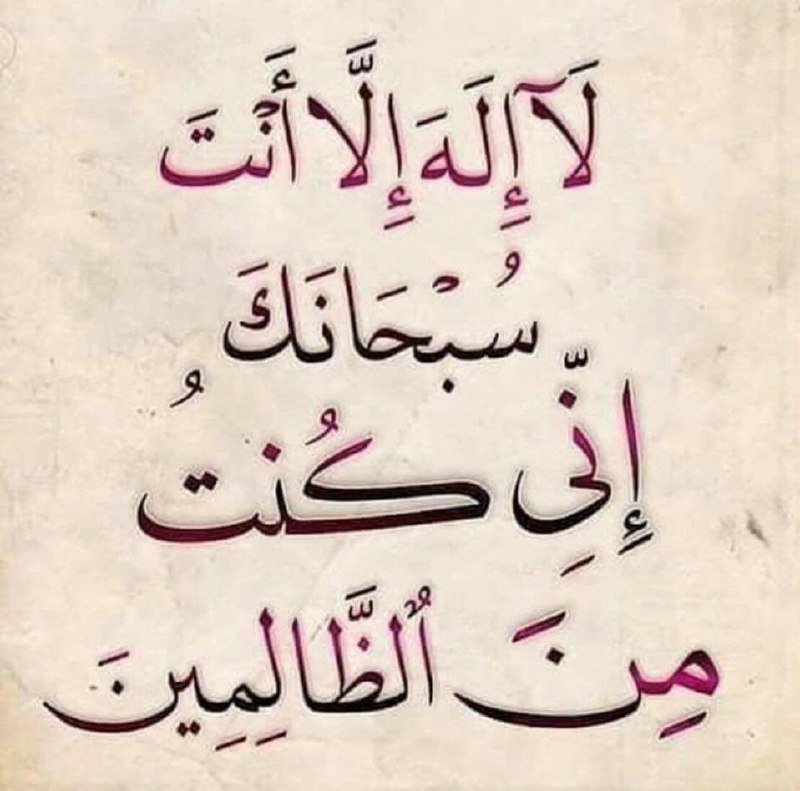 لَآ إِلَهَ إِلَّا أَنْتَ
سُبْحَانَكَ
إِنِّي كُنتُ
مِنَ ٱلظَّالِمِينَ